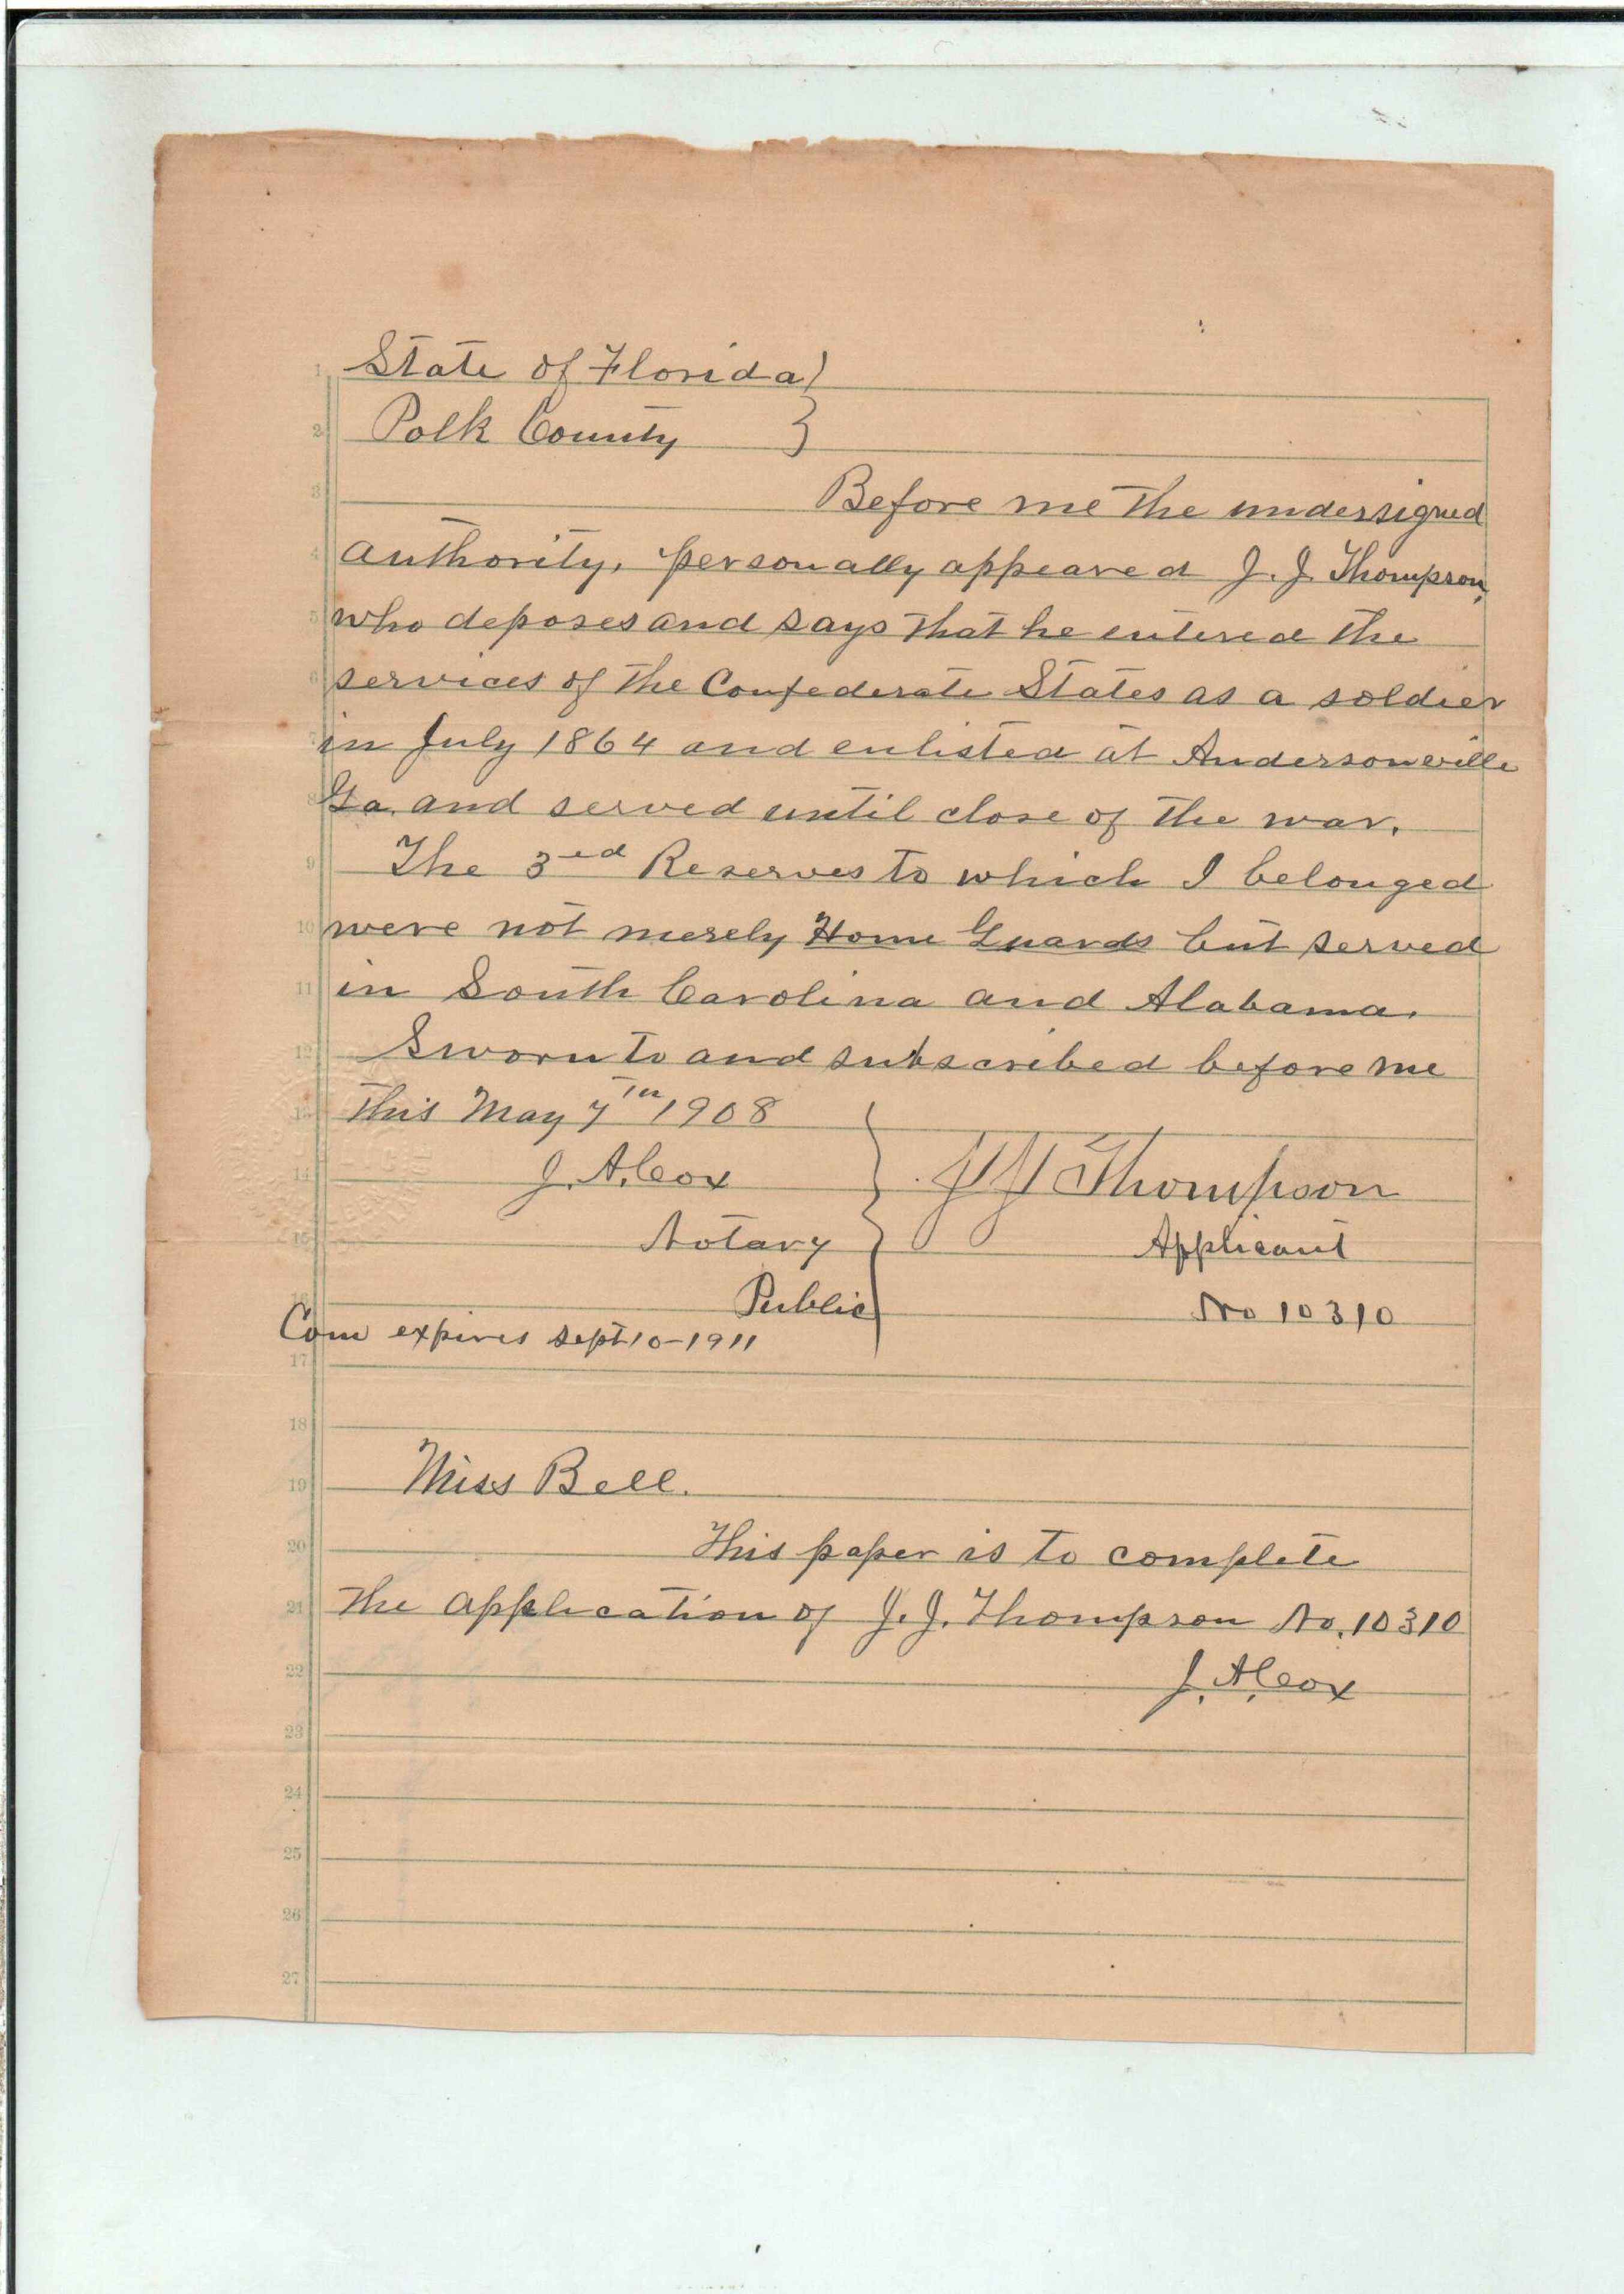 1 State of Florida)
2 Polk County }
3 Before me the undersigned
4 authority, personally appeared J. J. Thompson,
5 who deposes and says that he entered the
6 services of the Confederate States as a soldier
7 in July 1864 and enlisted at Andersonville
8 Ga. and served until close of the war.
9 The 3ed Reserves to which I belonged
10 were not merely Home Guards but served
11 in South Carolina and Alabama.
12 Sworn to and subscribed before me
13 this May 7th 1908
14 J. A. Cox } J J Thompson
15 Notary Applicant
16 Public No 10310
Com expires sept 10-1911
17
18
19 Miss Bell.
20 This paper is to complete
21 the application of J. J. Thompson No. 10310
22 J. A. Cox
23
24
25
26
27